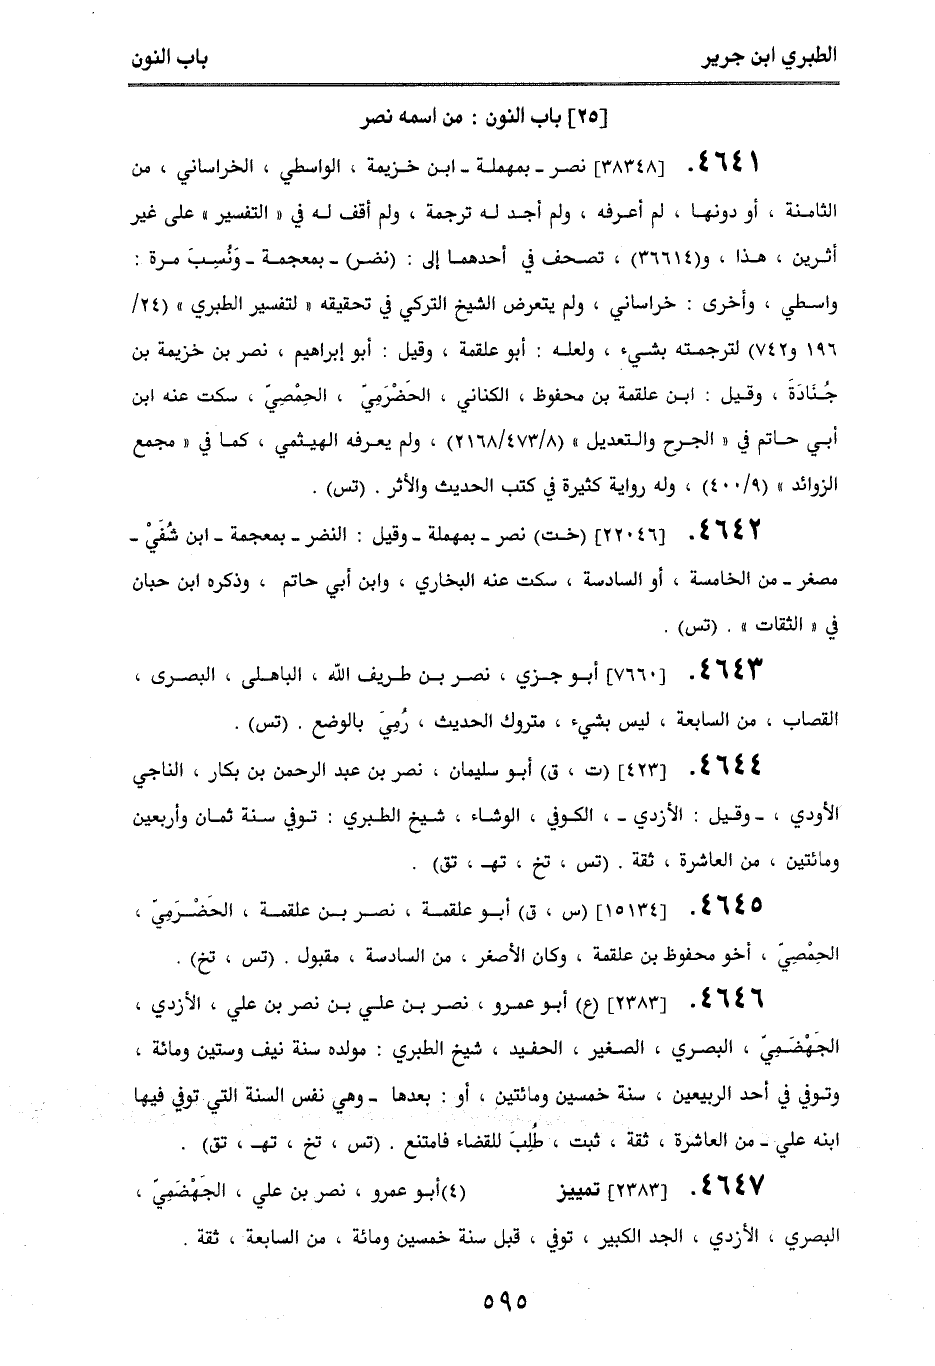 الطبري ابن جرير
باب النون
[٢٥] باب النون : من اسمه نصر
٤٦٤١. [٣٨٣٤٨] نصر ـ بمهملة ـ ابن خزيمة ، الواسطي ، الخراساني ، من
الثامنة ، أو دونها ، لم أعرفه ، ولم أجد له ترجمة ، ولم أقف له في « التفسير » على غير
أثرين ، هذا ، و(٣٦٦١٤) ، تصحف في أحدهما إلى : (نضر) ـ بمعجمة ـ وَنُسِبَ مرة :
واسطي ، وأخرى : خراساني ، ولم يتعرض الشيخ التركي في تحقيقه « لتفسير الطبري » (٢٤/
١٩٦ و٧٤٢) لترجمته بشيء ، ولعله : أبو علقمة ، وقيل : أبو إبراهيم ، نصر بن خزيمة بن
جُنَادَةَ ، وقيل : ابن علقمة بن محفوظ ، الكناني ، الحَضْرَمِيّ ، الحِمْصِيّ ، سكت عنه ابن
أبي حاتم في « الجرح والتعديل » (٢١٦٨/٤٧٣/٨) ، ولم يعرفه الهيثمي ، كما في « مجمع
الزوائد » (٤٠٠/٩) ، وله رواية كثيرة في كتب الحديث والأثر . (تس) .
٤٦٤٢. [٢٢٠٤٦] (خت) نصر ـ بمهملة ـ وقيل : النضر ـ بمعجمة ـ ابن شُفَيْ ـ
مصغر ـ من الخامسة ، أو السادسة ، سكت عنه البخاري ، وابن أبي حاتم ، وذكره ابن حبان
في « الثقات » . (تس) .
٤٦٤٣. [٧٦٦٠] أبو جزي ، نصر بن طريف الله ، الباهلى ، البصرى ،
القصاب ، من السابعة ، ليس بشيء ، متروك الحديث ، رُمِيَ بالوضع . (تس) .
٤٦٤٤. [٤٢٣] (ت ، ق) أبو سليمان ، نصر بن عبد الرحمن بن بكار ، الناجي
الأودي ، ـ وقيل : الأزدي ـ ، الكوفي ، الوشاء ، شيخ الطبري : توفي سنة ثمان وأربعين
ومائتين ، من العاشرة ، ثقة . (تس ، تخ ، تهـ ، تق) .
٤٦٤٥. [١٥١٣٤] (س ، ق) أبو علقمة ، نصر بن علقمة ، الحَضْرَمِيّ ،
الحِمْصِيّ ، أخو محفوظ بن علقمة ، وكان الأصغر ، من السادسة ، مقبول . (تس ، تخ) .
٤٦٤٦. [٢٣٨٣] (ع) أبو عمرو ، نصر بن علي بن نصر بن علي ، الأزدي ،
الجَهْضَمِيّ ، البصري ، الصغير ، الحفيد ، شيخ الطبري : مولده سنة نيف وستين ومائة ،
وتوفي في أحد الربيعين ، سنة خمسين ومائتين ، أو : بعدها ـ وهي نفس السنة التي توفي فيها
ابنه علي ـ من العاشرة ، ثقة ، ثبت ، طُلِبَ للقضاء فامتنع . (تس ، تخ ، تهـ ، تق) .
٤٦٤٧. [٢٣٨٣] تمييز (٤)أبو عمرو ، نصر بن علي ، الجَهْضَمِيّ ،
البصري ، الأزدي ، الجد الكبير ، توفي ، قبل سنة خمسين ومائة ، من السابعة ، ثقة .
٥٩٥